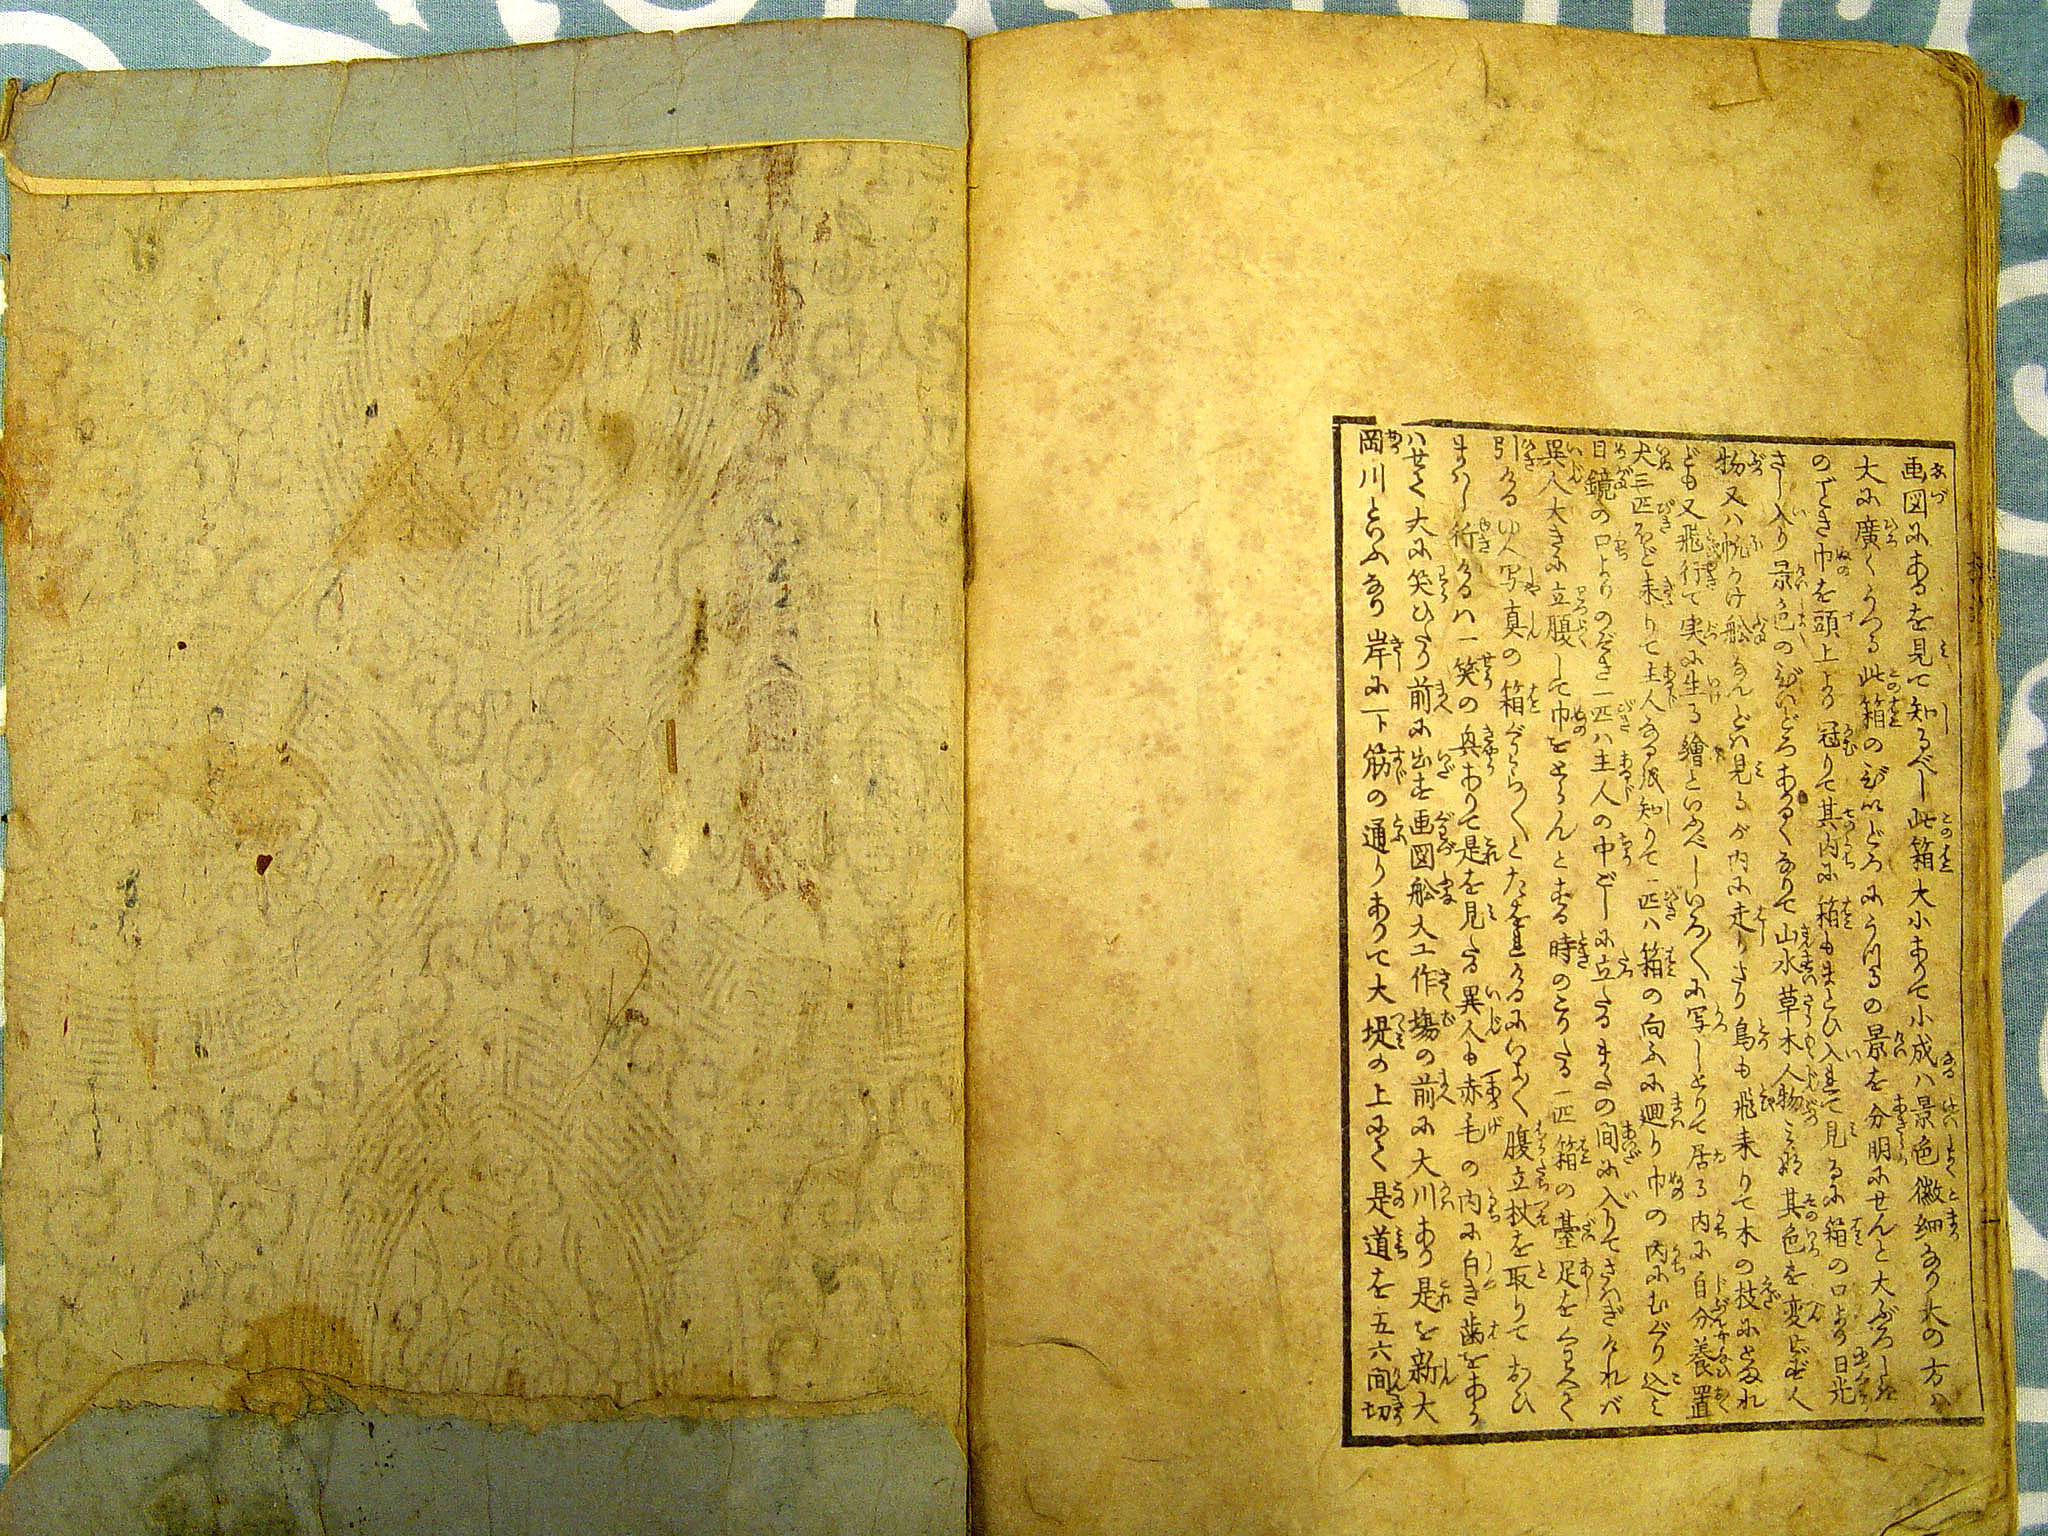 画図にあるを見て知るべし此箱大小ありて小成ハ景色微細なり大の方ハ
大に廣くうつる此箱のびいどろにうつるの景を分明にせんと大ぶろしき
のごとき巾を頭上より冠りて其内に箱もまとひ入其て見るに箱の口より日光
さし入り景色のびいどろあかるくなりて山水草木人物 其色を変ぜず人
物又ハ帆かけ舩なんどハ見るが内に走りさり鳥も飛来りて木の枝にとまれ
ども又飛行て実に生る繪といふべしいろ〳〵に写しとりて居る内に自分養置
犬三匹ほど来りて主人なる 知りて一匹ハ箱の向ふに廻り巾の内にむぐり込ミ
目鏡の口よりのぞき一匹ハ主人の巾ごしに立たるまたの間に入りてさわぎけれバ
異人大きに立腹して巾をとらんとする時のこりたる一匹箱の臺足を
引ける 写真の箱ぐら〳〵とたをれけるにいよ〳〵腹立杖を取りておひ
まハし行けるハ一笑の興ありて是を見たる異人も赤毛の内に白き歯をあら
ハせて大に笑ひたり前に出す画図舩大工作場の前に大川あり是を新大
岡川といふなり岸に一ト筋の通りありて大堤の上にて是道を五六間切